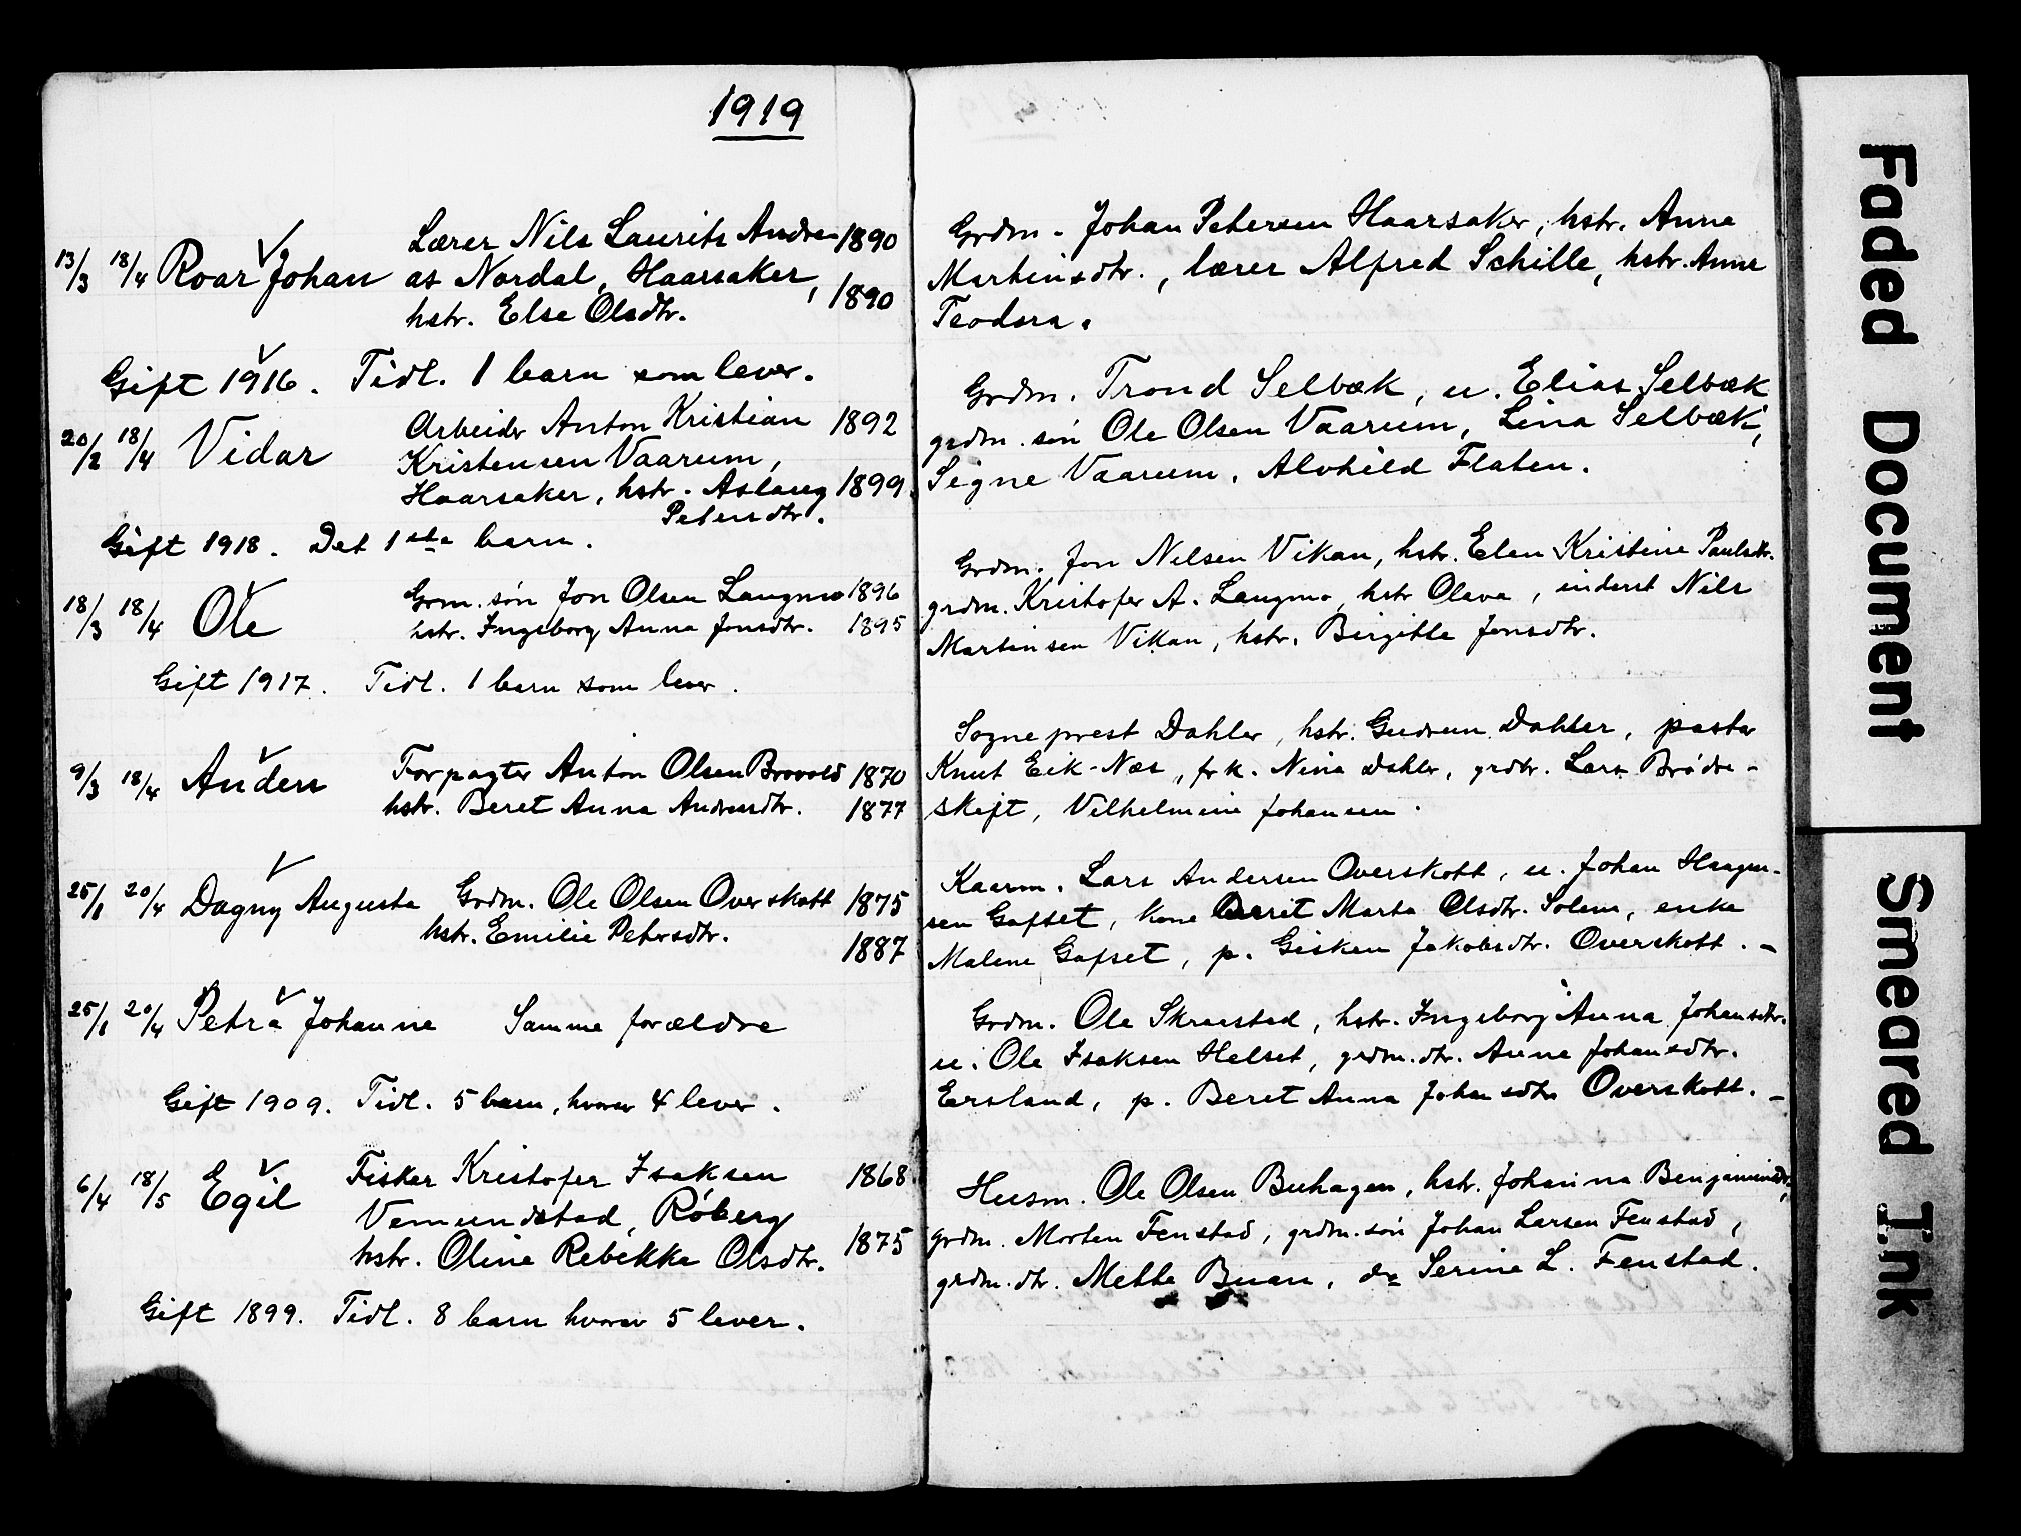 1919
13/3 18/4 Roar Johan Lærer Nils Laurits Andre- 1890
as Nordal, Haarsaker, 1890
hstr. Else Olsdtr.
Gift 1916. Tidl. 1 barn som lever.
20/2 18/4 Vidar Arbeider Anton Kristian 1892
Kristensen Vaarum,
Haarsaker, hstr. Aslaug 1899
Petersdtr.
Gift 1918. Det 1ste barn.
18/3 18/4 Ole Grm. søn Jon Olsen Langmo 1896
hstr. Ingeborg Anna Jonsdtr. 1895
Gift 1917. Tidl. 1 barn som lever.
9/3 18/4 Anders Forpagter Anton Olsen Brovold 1870
hstr. Beret Anna Andersdtr. 1877
25/1 20/4 Dagny Augusta Grdm. Ole Olsen Overskott 1875
hstr. Emilie Petersdtr. 1887
25/1 20/4 Petra Johanne Samme forældre
Gift 1909. Tidl. 5 barn, hvorav 4 lever.
6/4 18/5 Egil Fisker Kristofer Isaksen 1868
Vemundstad, Røberg
hstr. Oline Rebekka Olsdtr. 1875
Gift 1899. Tidl. 8 barn hvorav 5 lever.
Grdm. Johan Petersen Haarsaker, hstr. Anne
Martinsdtr., lærer Alfred Schille, hstr. Anna
Teodora.
Grdm. Trond Selbæk, u. Elias Selbæk
grdm. søn Ole Olsen Vaarum, Lina Selbæk,
Signe Vaarum, Alvhild Flaten.
Grdm. Jon Nilsen Vikan, hstr. Elen Kristine Paulsdtr.
grdm. Kristofer A. Langmo, hstr Olava, inderst Nils
Martinsen Vikan, hstr. Birgitte Jonsdtr.
Sogneprest Dahler, hstr. Gudrun Dahler, pastor
Knut Eik-Næs, frk. Nina Dahler, grdbr. Lars Brødre-
skift, Vilhelmine Johansen.
Kaarm. Lars Andersen Overskott, u. Johan Haagen-
sen Gafset, kone Berit Marta Olsdtr. Solem, enke
Malene Gafset, p. Gisken Jakobsdtr. Overskott. -
Grdm. Ole Skraastad, hstr. Ingeborg Anna Johansdtr.
u. Ole Isaksen Helset, grdm. dtr. Anne Johansdtr.
Ersland, p. Beret Anna Johansdtr Overskott. -
Husm. Ole Olsen Buhagen, hstr. Johanna Benjaminsdtr,
grdm. Morten Fenstad, grdm. søn Johan Larsen Fenstad,
grdm. dtr. Mette Buan, do Serine L. Fenstad.
Faded Document
Smeared Ink